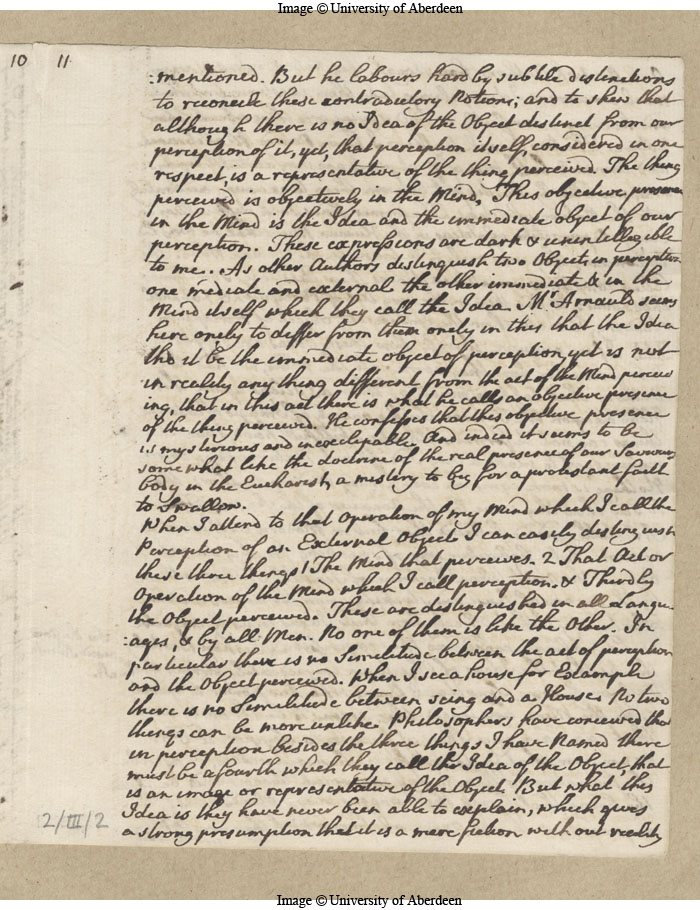 Image © University of Aberdeen
10 11
:mentioned. But he labours hard by subtile distinctions
to reconcile these contradictory Notions; and to shew that
although there is no Idea of the Object distinct from our
perception of it, yet, that perception itself, considered in one
respect, is a representative of the thing perceived. The thing
perceived is objectively in the Mind, This objective presence
in the Mind is the Idea and the immediate object of our
perception. These expressions are dark & unintelligible
to me. As other Authors distinguish two Objects in perception
one mediate and external the other immediate & in the
Mind itself which they call the Idea. Mr Arnauld seems
here onely to differ from them onely in this that the Idea
tho it be the immediate object of perception, yet is not
in reality any thing different from the act of the Mind perceiv
ing, that in this act there is what he calls an objective presence
of the thing perceived. He confesses that this objective presence
is mysterious and inexplicable And indeed it seems to be
some what like the doctrine of the real presence of our Saviours
body in the Eucharist, a mistery to big for a protestant faith
to Swallow.
When I attend to that Operation of my Mind which I call the
Perception of an External Object I can easely distinguish
these three things 1 The Mind that perceives. 2 That Act or
Operation of the Mind which I call perception. & Thirdly
the Object perceived. These are distinguished in all Langu-
:ages, & by all Men. No one of them is like the Other. In
particular there is no Similitude between the act of perception
and the Object perceived. When I see a house for Example
there is no Similitude between seing and a House. No two
things can be more unlike. Philosophers have conceived that
in perception besides the three things I have Named there
must be a fourth which they call the Idea of the Object, that
is an image or representative of the Object. But what this
Idea is they have never been able to explain, which gives
a strong presumption that it is a mere fiction with out reality
2/III/2
Image © University of Aberdeen